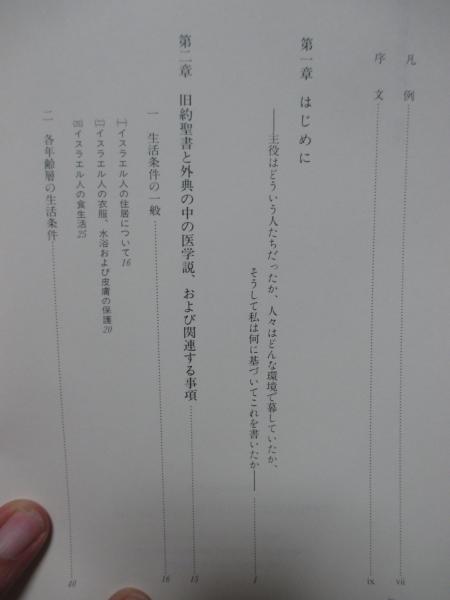 凡例……vii
序文……ix
第一章 はじめに
――主役はどういう人たちだったか、人々はどんな環境で暮していたか、
そうして私は何に基づいてこれを書いたか――……1
第二章 旧約聖書と外典の中の医学説、および関連する事項……15
一 生活条件の一般……16
㈠イスラエル人の住居について16
㈡イスラエル人の衣服、水浴および皮膚の保護20
㈢イスラエル人の食生活25
二 各年齢層の生活条件……40